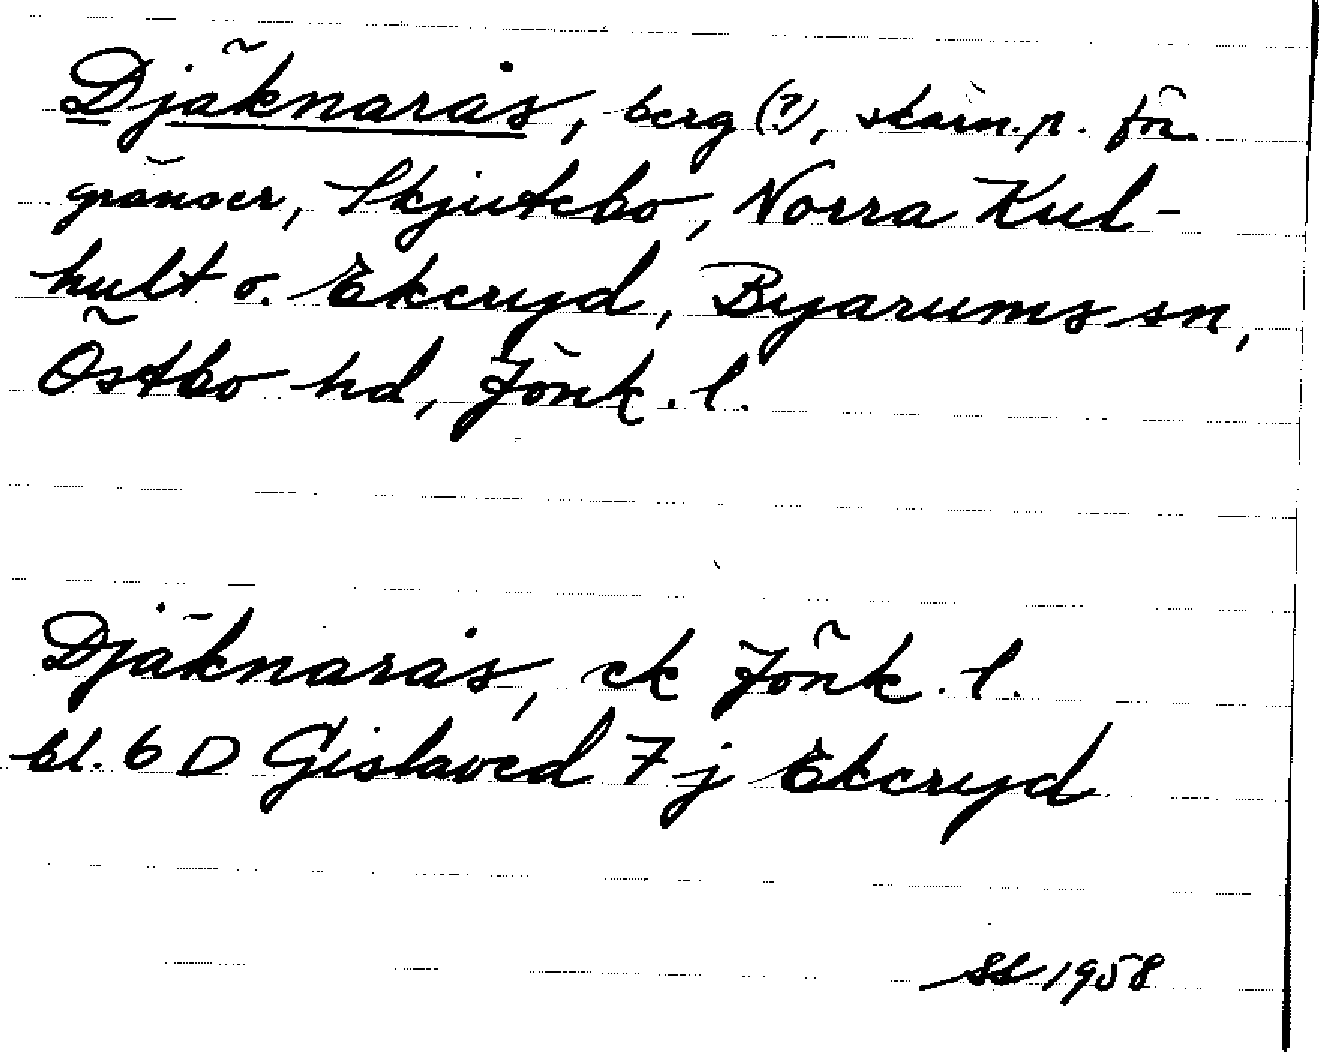 Djäknarås, berg (?), skärn.p. för
gränser, Skjutebo, Norra Kul-
hult o. Ekeryd, Byarums sn,
Östbo hd, Jönk. l.
Djäknarås, ek Jönk. l.
bl. 6 D Gislaved 7 j Ekeryd
1958